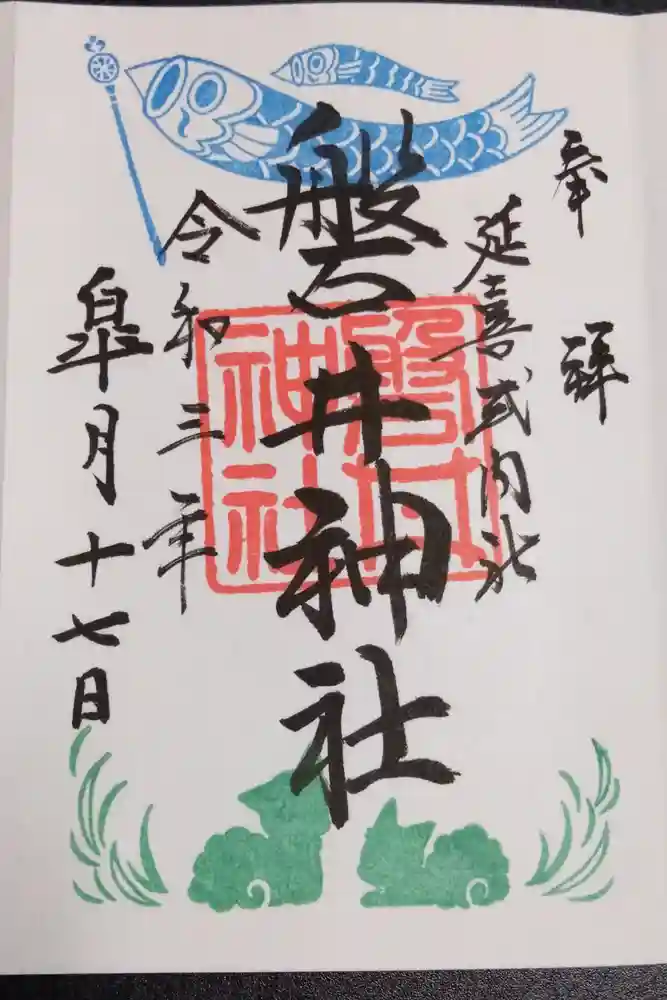 奉拝
延喜式内社
磐井神社
磐井神社
令和三年
皐月十七日